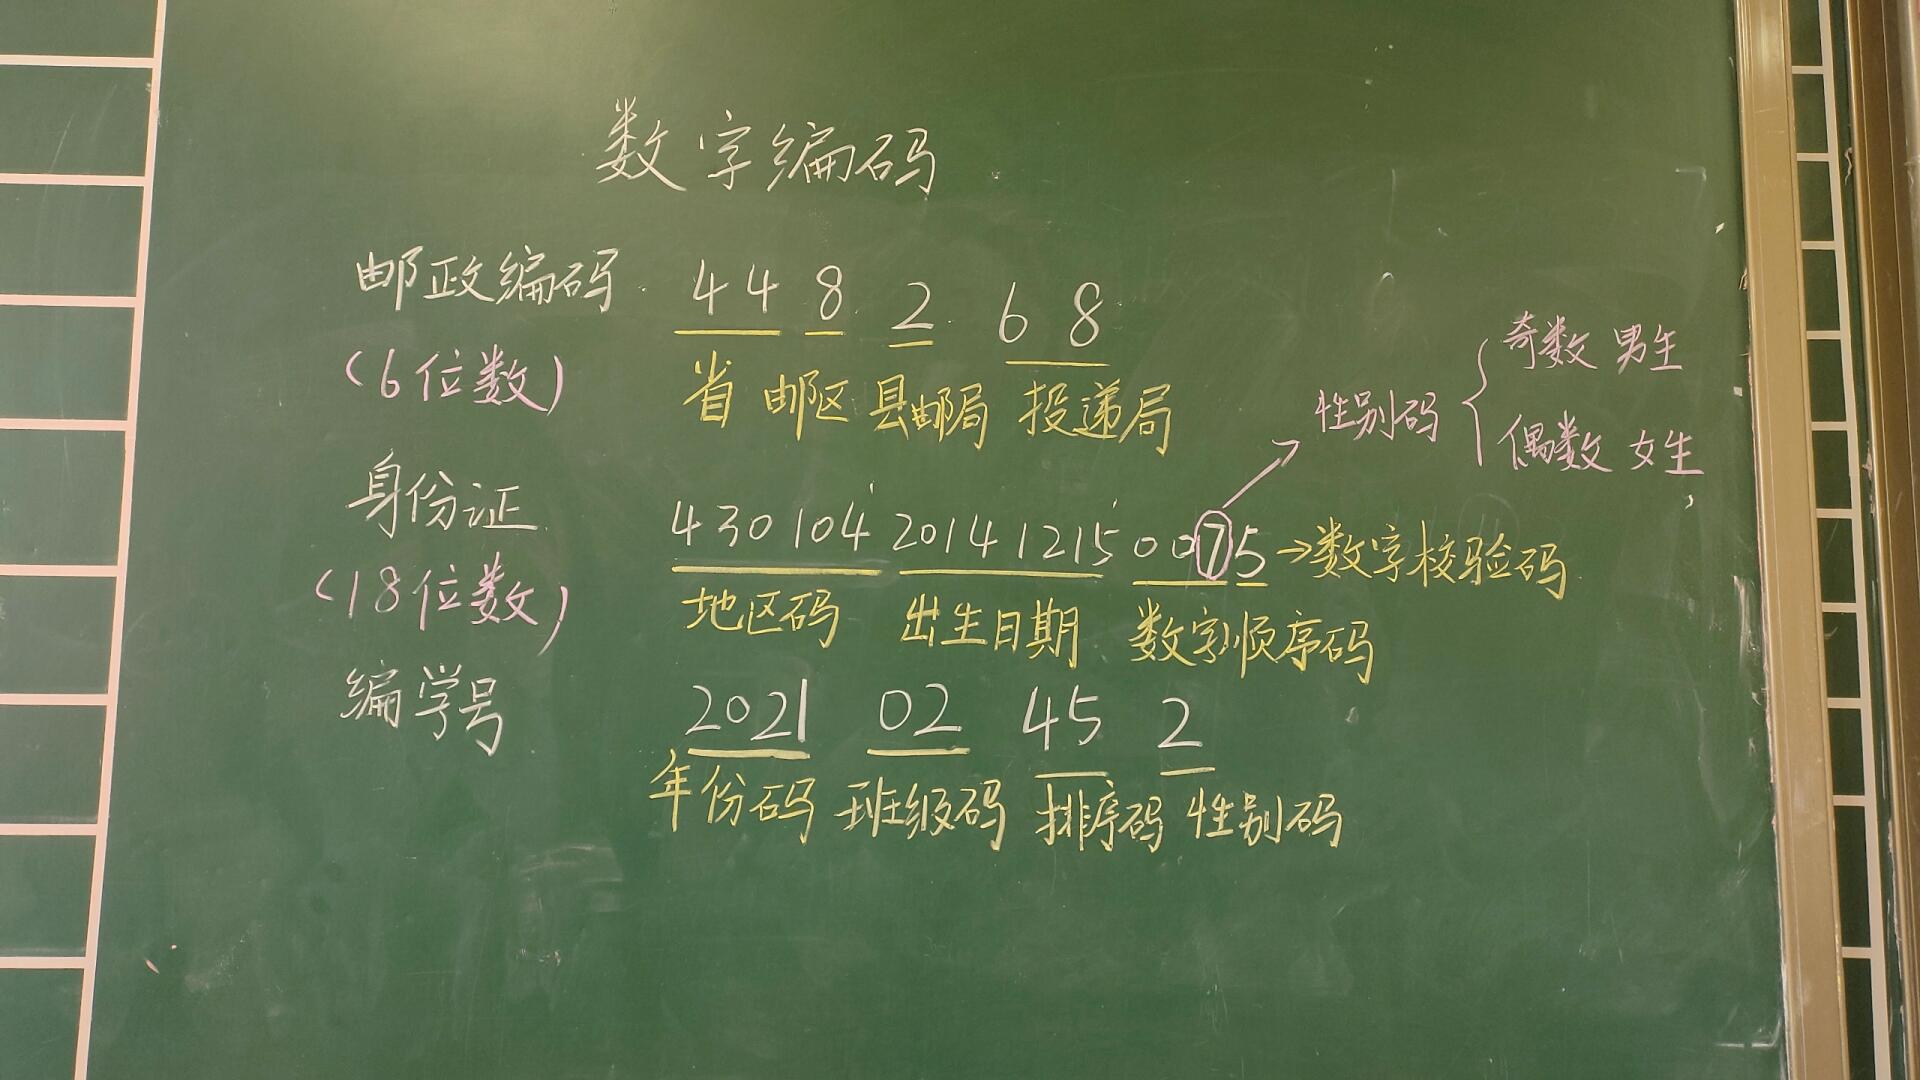 数字编码
邮政编码 44 8 2 68
(6位数) 省 邮区 县邮局 投递局
性别码 { 奇数 男生
偶数 女生
身份证 430104 20141215 0075 →数字校验码
(18位数) 地区码 出生日期 数字顺序码
编学号 2021 02 45 2
年份码 班级码 排序码 性别码